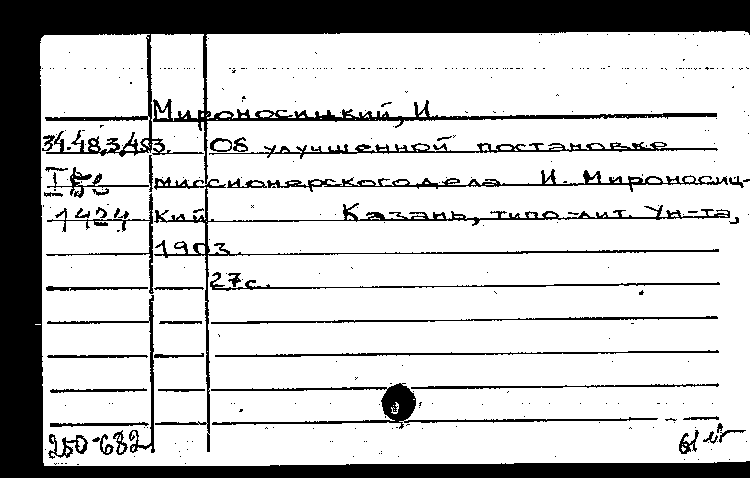 Мироносицкий, И.
34.48.3,493. Об улучшенной постановке
миссионерского дела И. Мироносиц-
1424 кий. Казань, типо-лит. Ун-та,
1903.
27с.
250-682